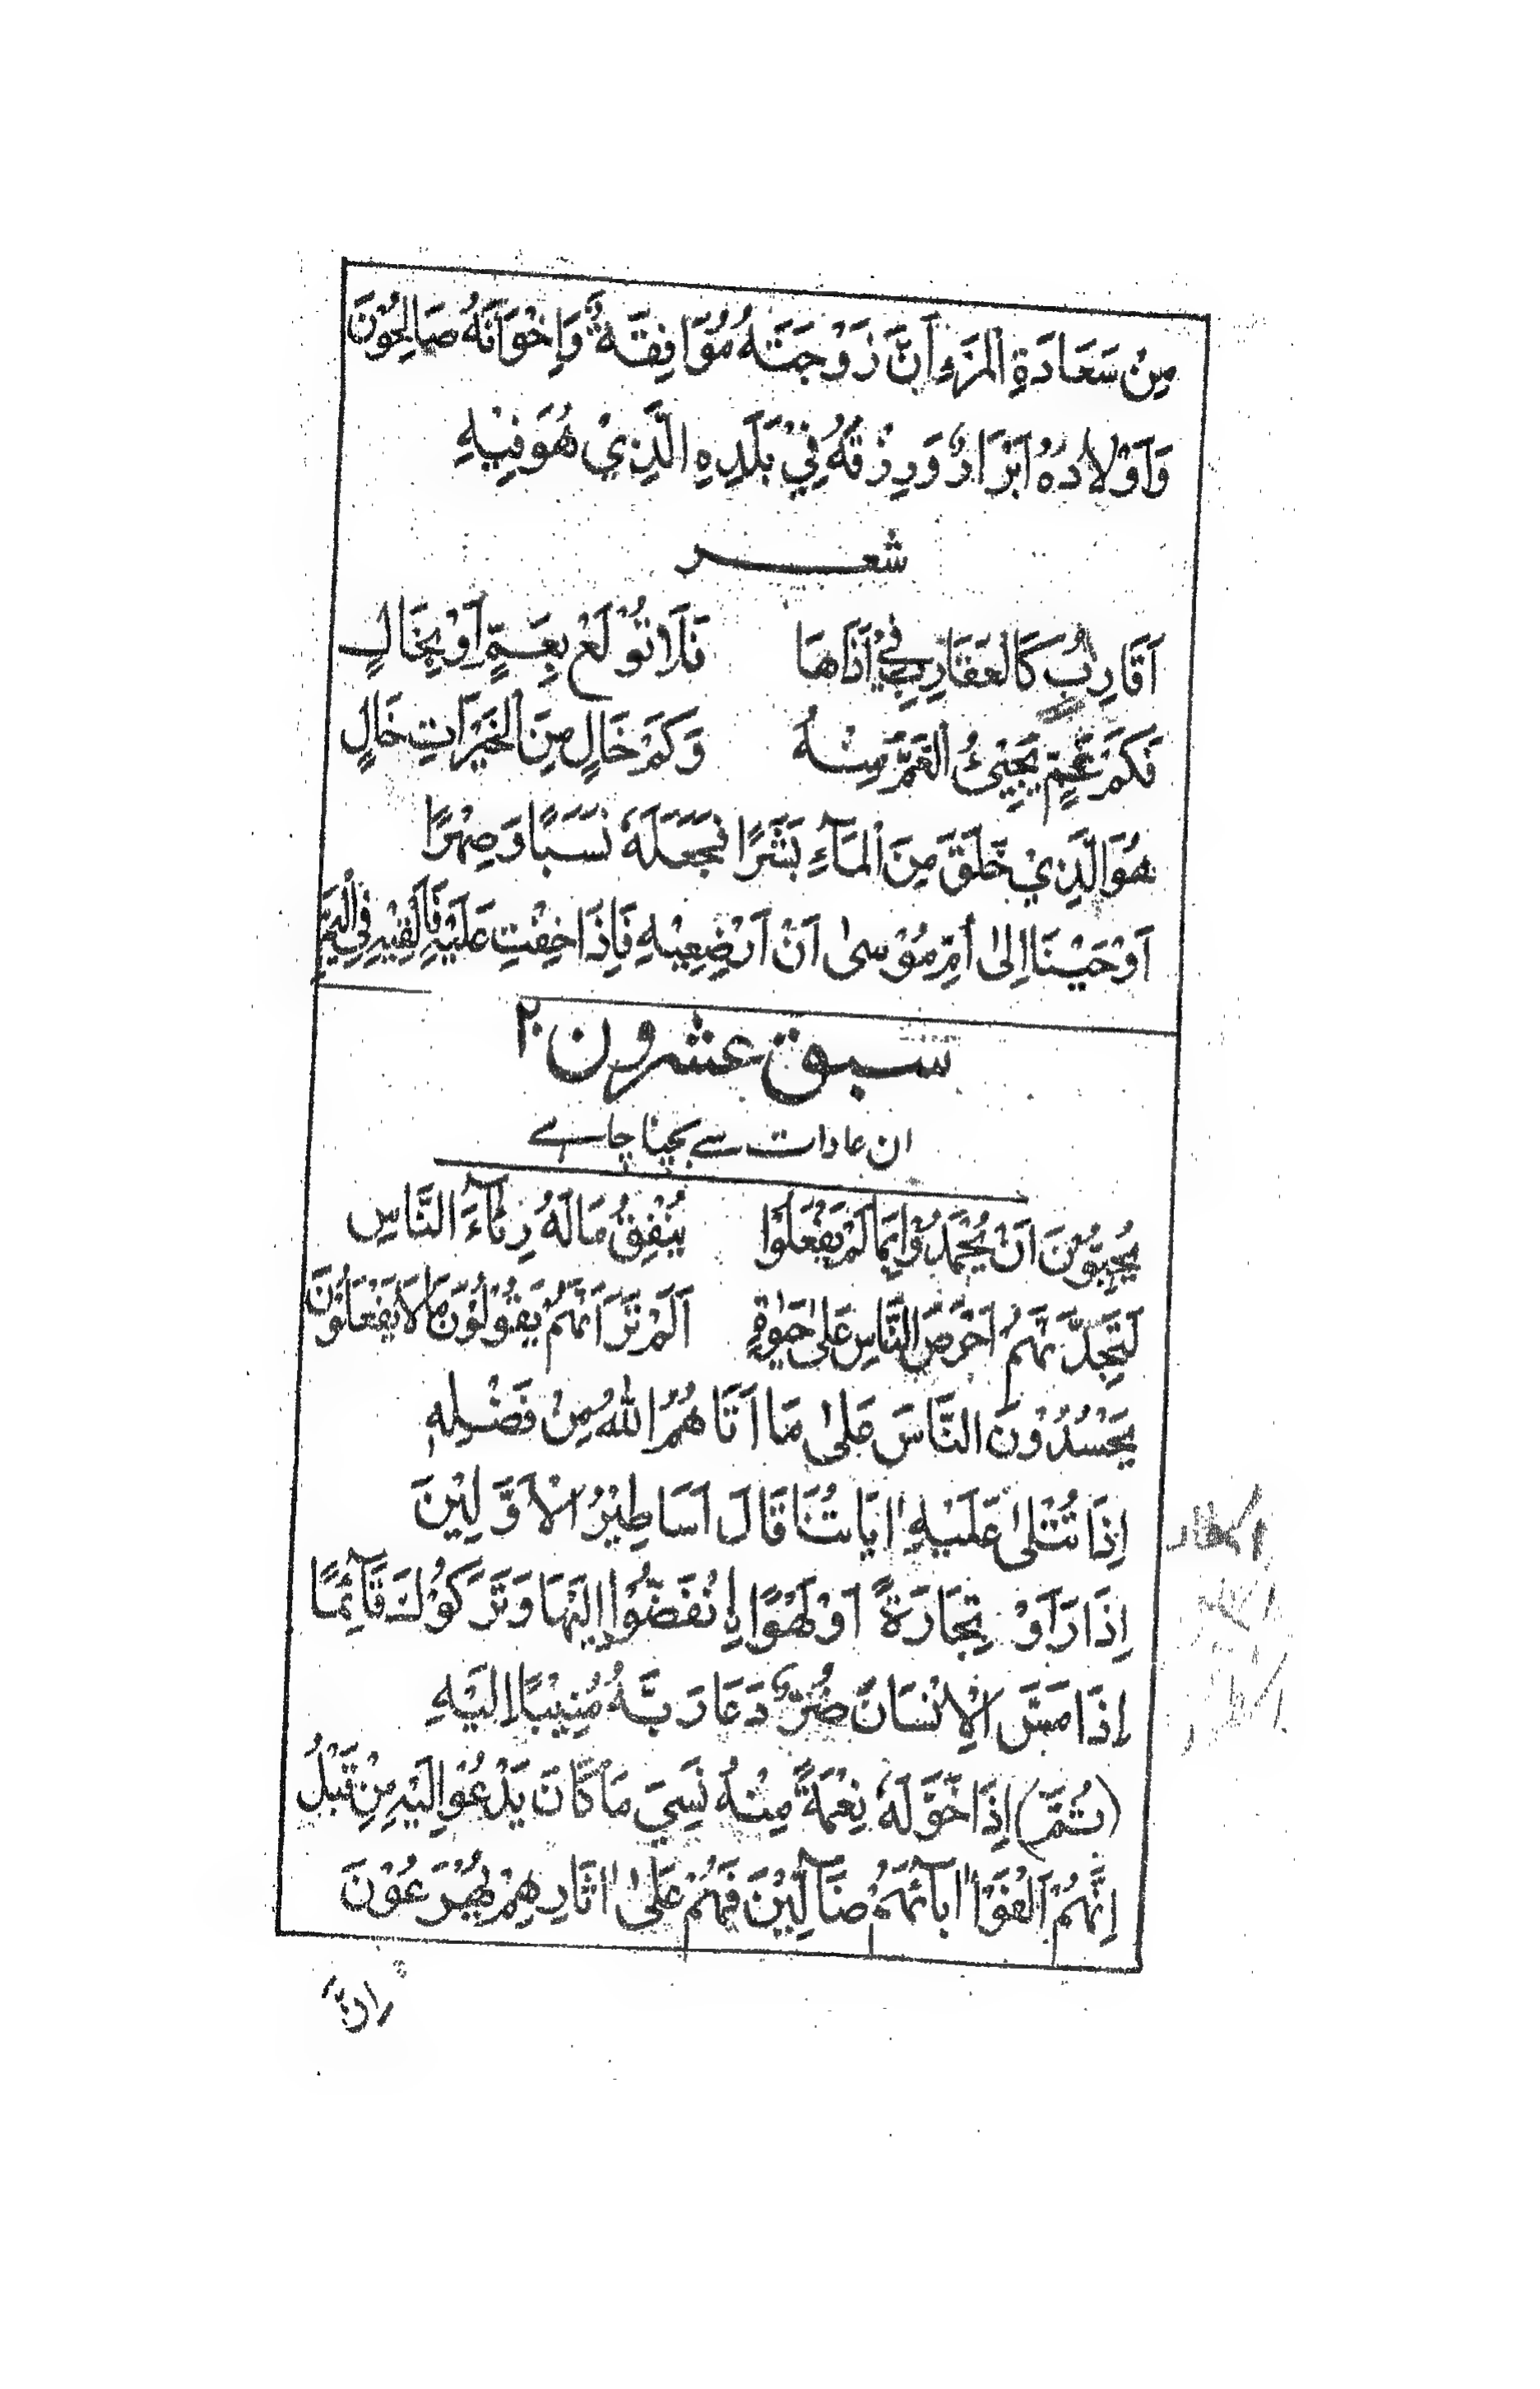 مِنْ سَعَادَةِ الْمَرْءِ اَنَّ زَوْجَتَهُ مُوَافِقَةٌ وَاِخْوَانَهُ صَالِحُوْنَ
وَاَوْلَادُهُ اَبْرَارٌ وَرِزْقُهُ فِيْ بَلَدِهِ الَّذِيْ هُوَ فِيْهِ
شعر
اَقَارِبُ كَالْعَقَارِبِ فِيْ اَذَاهَا فَلَا تُوْلَعْ بِعَمٍّ اَوْ بِخَالٍ
فَكَمْ عَمٍّ يَجِيْئُ الْغَمُّ مِنْهُ وَكَمْ خَالٍ مِنَ الْخَيْرَاتِ خَالٍ
هُوَ الَّذِيْ خَلَقَ مِنَ الْمَآءِ بَشَرًا فَجَعَلَهٗ نَسَبًا وَصِهْرًا
اَوْحَيْنَا اِلٰى اُمِّ مُوْسىٰ اَنْ اَرْضِعِيْهِ فَاِذَا خِفْتِ عَلَيْهِ فَاَلْقِيْهِ فِي الْيَمِّ
سبق عشرون ۲۰
ان عادات سے بچنا چاہیے
يُحِبُّوْنَ اَنْ يُحْمَدُوْا بِمَا لَمْ يَفْعَلُوْا يُنْفِقُ مَالَهُ رِئَآءَ النَّاسِ
لَتَجِدَنَّهُمْ اَحْرَصَ النَّاسِ عَلىٰ حَيٰوةٍ اَلَمْ تَرَ اَنَّهُمْ يَقُوْلُوْنَ مَا لَا يَفْعَلُوْنَ
يَحْسُدُوْنَ النَّاسَ عَلىٰ مَا اَتَاهُمُ اللهُ مِنْ فَضْلِهٖ
اِذَا تُتْلىٰ عَلَيْهِ اٰيَاتُنَا قَالَ اَسَاطِيْرُ الْاَوَّلِيْنَ
اِذَا رَاَوْ تِجَارَةً اَوْ لَهْوًا اِنْفَضُّوْا اِلَيْهَا وَتَرَكُوْكَ قَآئِمًا
اِذَا مَسَّ الْاِنْسَانَ ضُرٌّ دَعَا رَبَّهُ مُنِيْبًا اِلَيْهِ
(ثُمَّ) اِذَا خَوَّلَهٗ نِعْمَةً مِنْهُ نَسِيَ مَا كَانَ يَدْعُوْا اِلَيْهِ مِنْ قَبْلُ
اِنَّهُمْ اَلْفَوْا اٰبَآئَهُمْ ضَآلِّيْنَ فَهُمْ عَلىٰ اٰثَارِهِمْ يُهْرَعُوْنَ
اِنَّ